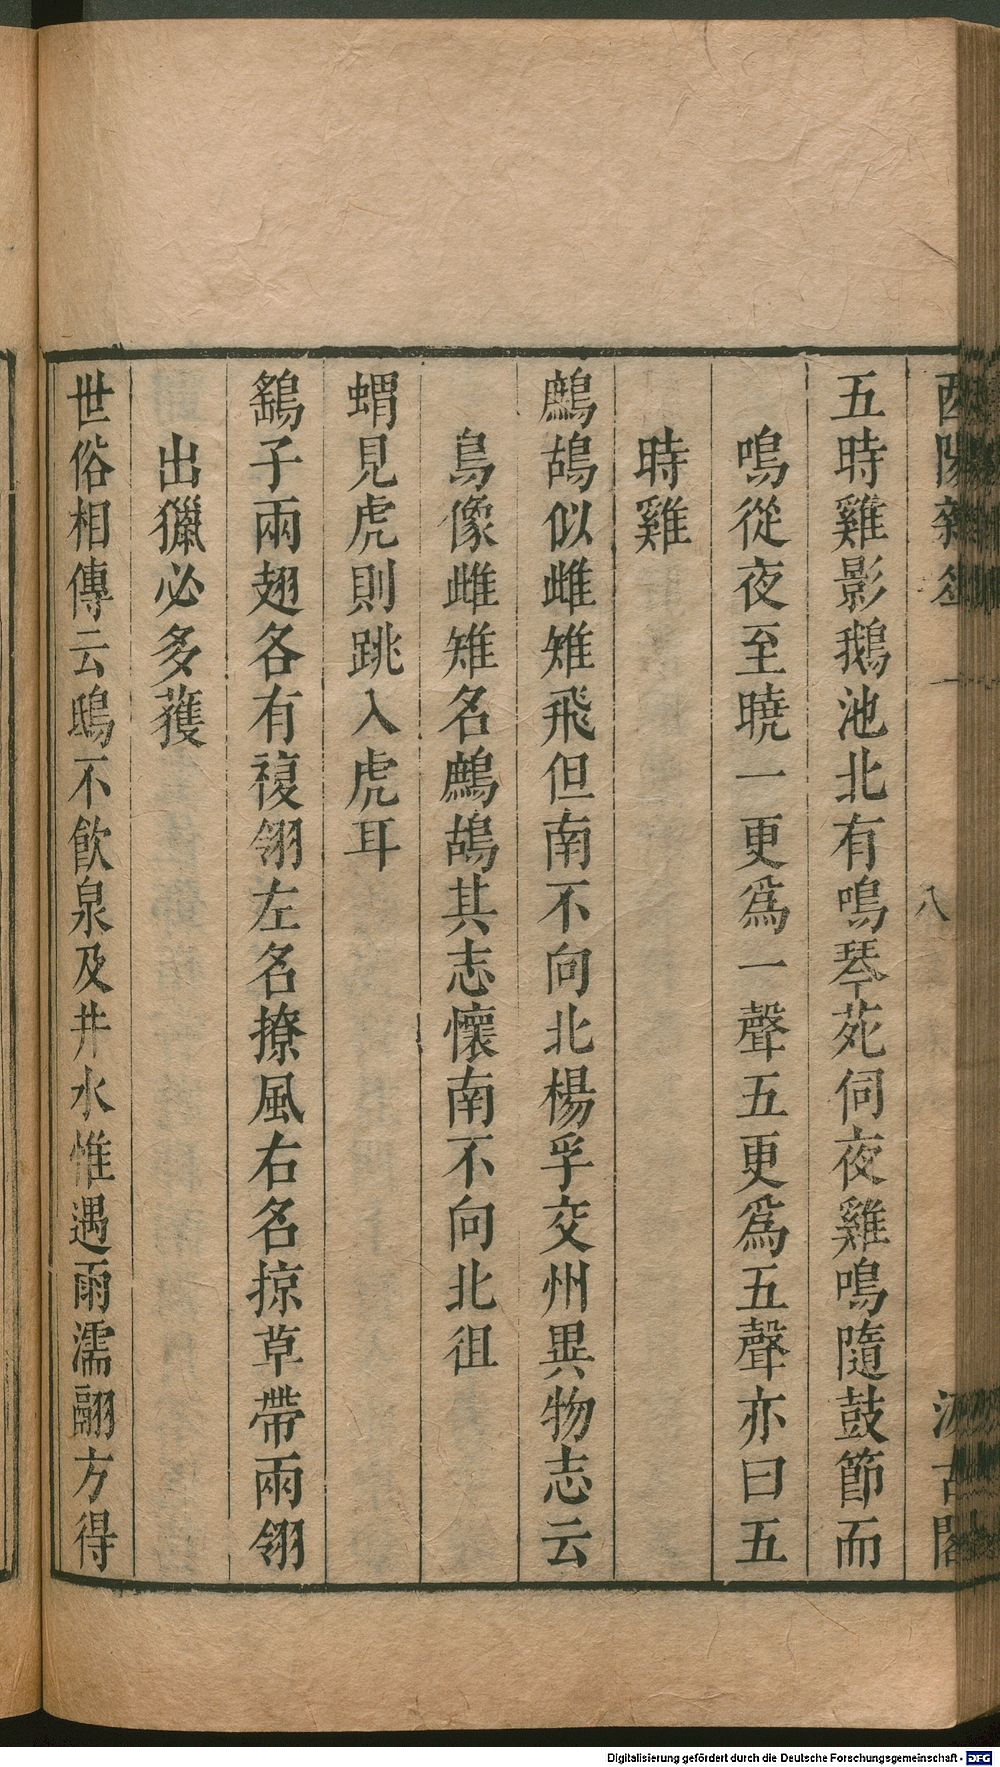 酉陽雜俎 一 八 汲古閣
五時雞影鵝池北有鳴琴苑伺夜雞鳴隨鼓節而
鳴從夜至曉一更爲一聲五更爲五聲亦曰五
時雞
鷓鴣似雌雉飛但南不向北楊孚交州異物志云
鳥像雌雉名鷓鴣其志懷南不向北徂
蝟見虎則跳入虎耳
鷂子兩翅各有複翎左名撩風右名掠草帶兩翎
出獵必多獲
世俗相傳云鴟不飲泉及井水惟遇雨濡翮方得
Digitalisierung gefördert durch die Deutsche Forschungsgemeinschaft - DFG